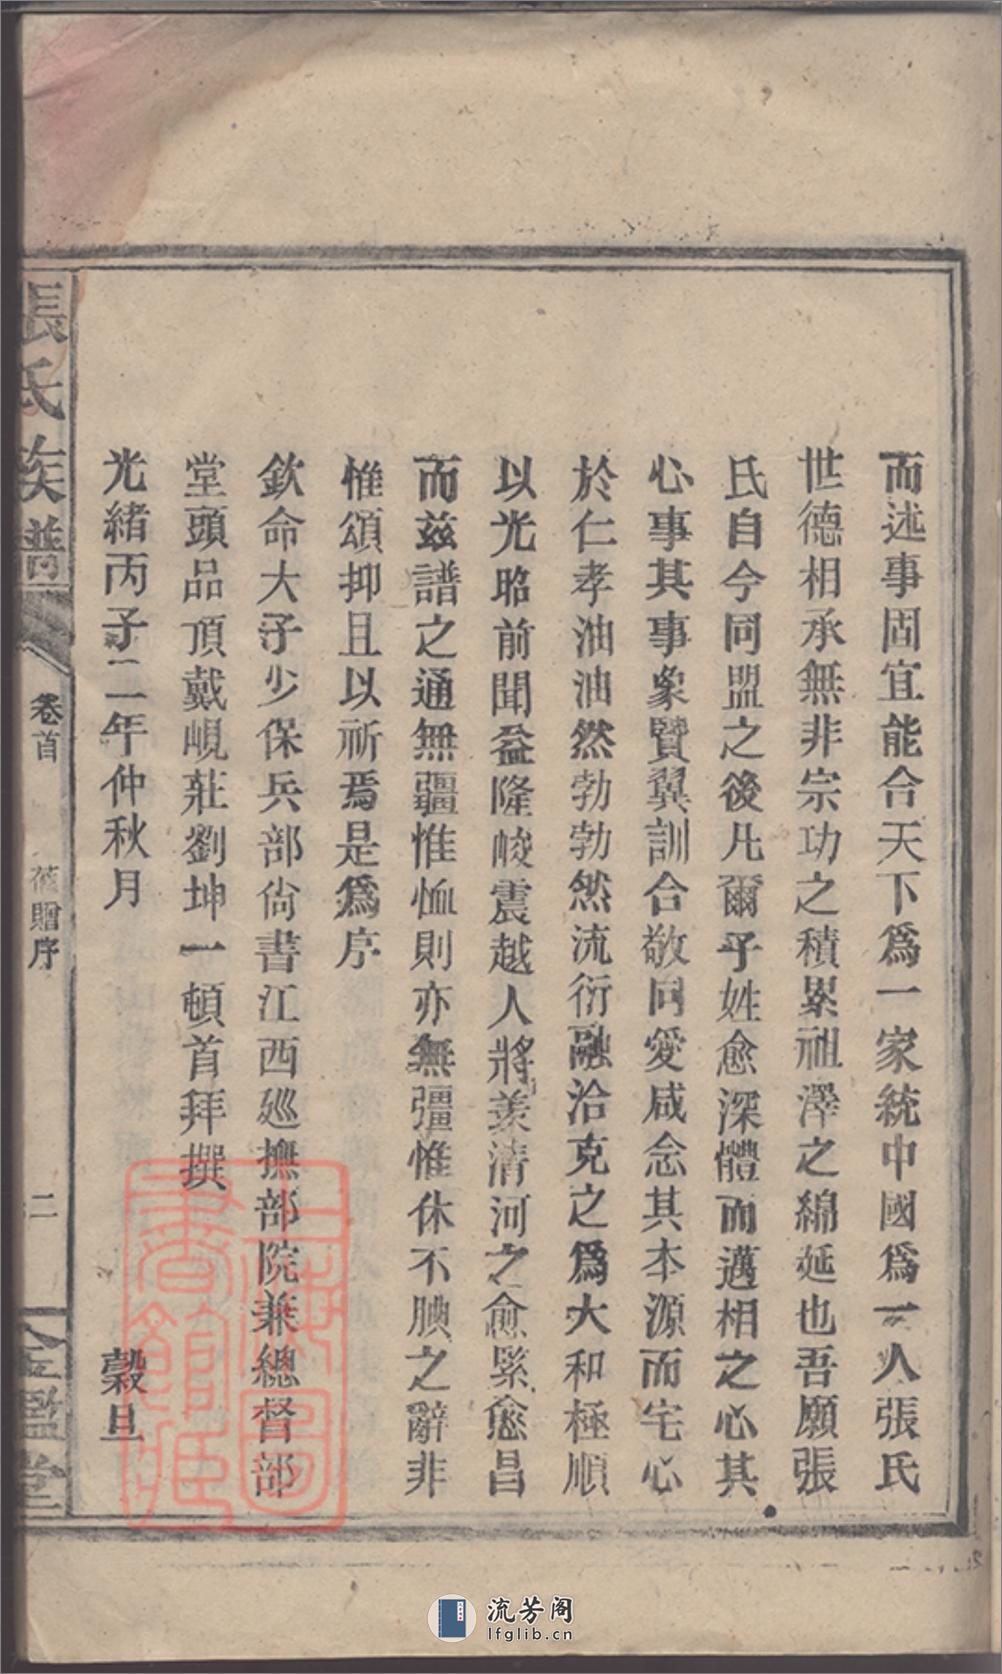 而述事固宜能合天下爲一家統中國爲一人張氏
世德相承無非宗功之積累祖澤之綿延也吾願張
氏自今同盟之後凡爾子姓愈深體而邁相之心其
心事其事象賢翼訓合敬同愛咸念其本源而宅心
於仁孝油油然勃勃然流衍融洽克之爲大和極順
以光昭前聞益隆峻震越人將羨清河之愈緊愈昌
而茲譜之通無疆惟恤則亦無彊惟休不腆之辭非
惟頌抑且以祈焉是爲序
欽命大子少保兵部尙書江西廵撫部院兼總督部
堂頭品頂戴峴莊劉坤一頓首拜撰
光緒丙子二年仲秋月 穀旦
張氏族譜 卷首 贈序 二 金鑑堂
上海圖書館藏
流芳阁
lfglib.cn